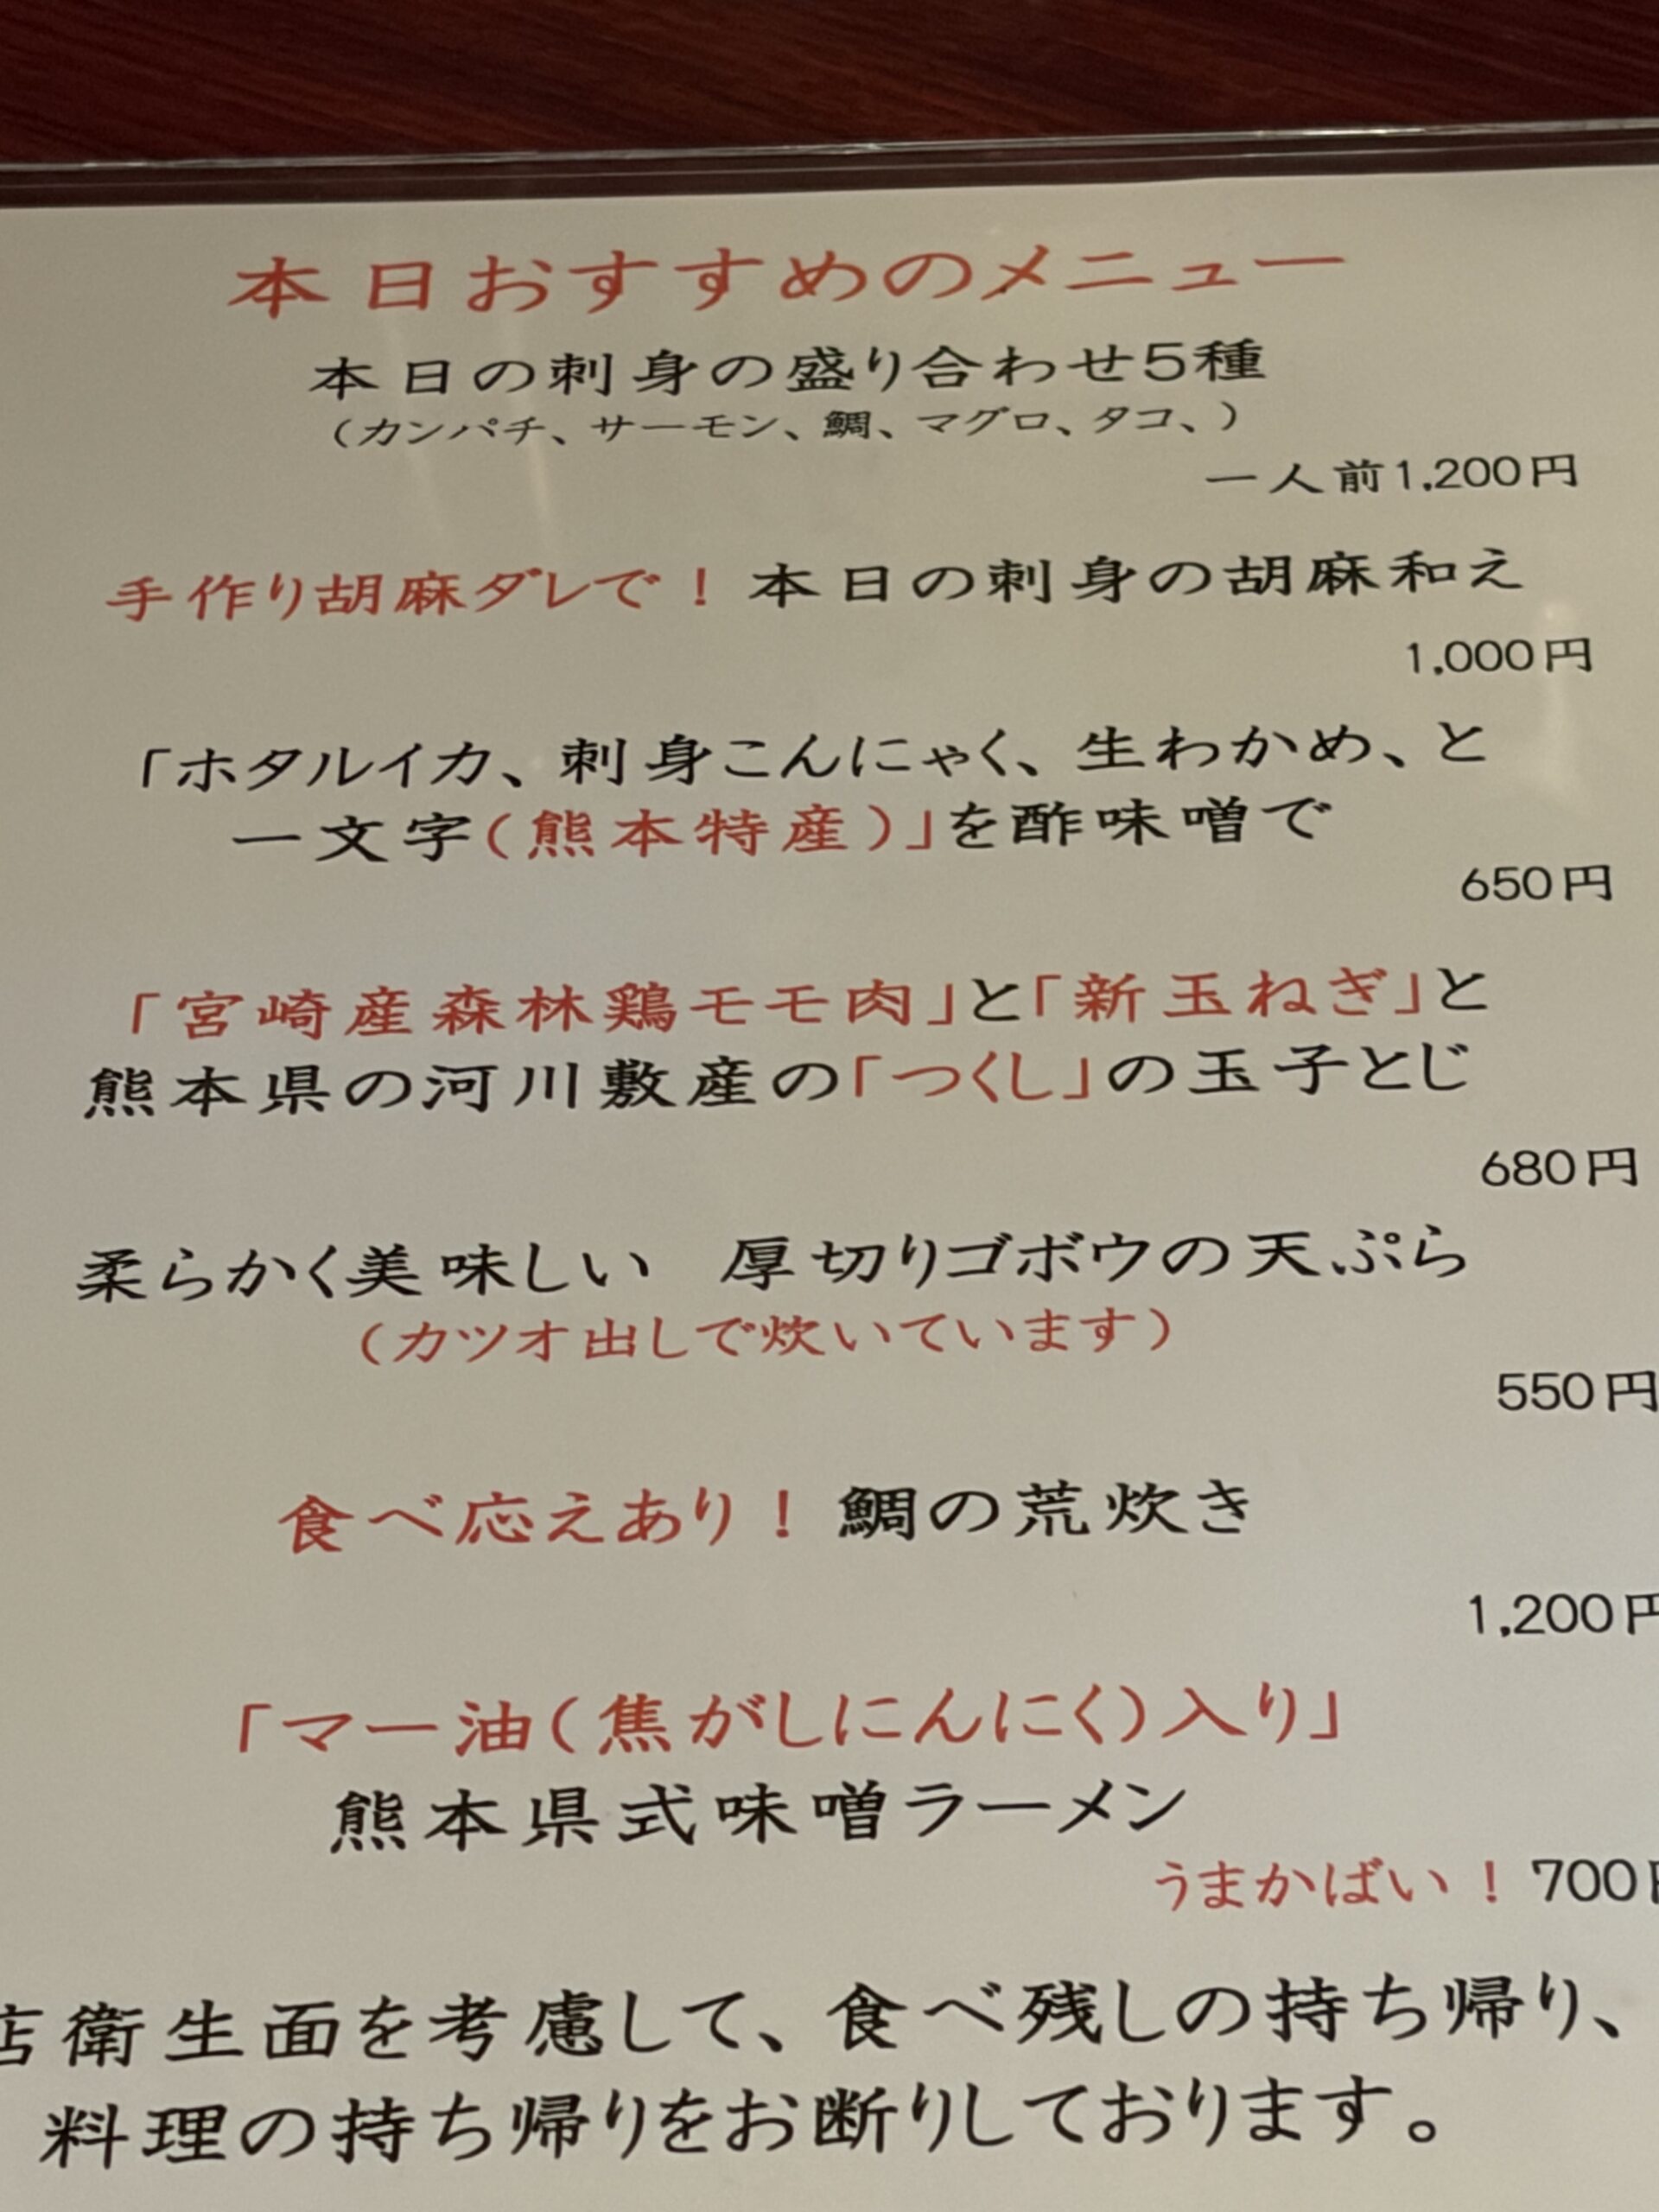 本日おすすめのメニュー
本日の刺身の盛り合わせ5種
（カンパチ、サーモン、鯛、マグロ、タコ、）
一人前1,200円
手作り胡麻ダレで！本日の刺身の胡麻和え
1,000円
「ホタルイカ、刺身こんにゃく、生わかめ、と
一文字（熊本特産）」を酢味噌で
650円
「宮崎産森林鶏モモ肉」と「新玉ねぎ」と
熊本県の河川敷産の「つくし」の玉子とじ
680円
柔らかく美味しい　厚切りゴボウの天ぷら
（カツオ出しで炊いています）
550円
食べ応えあり！鯛の荒炊き
1,200円
「マー油（焦がしにんにく）入り」
熊本県式味噌ラーメン
うまかばい！700円
店衛生面を考慮して、食べ残しの持ち帰り、
料理の持ち帰りをお断りしております。